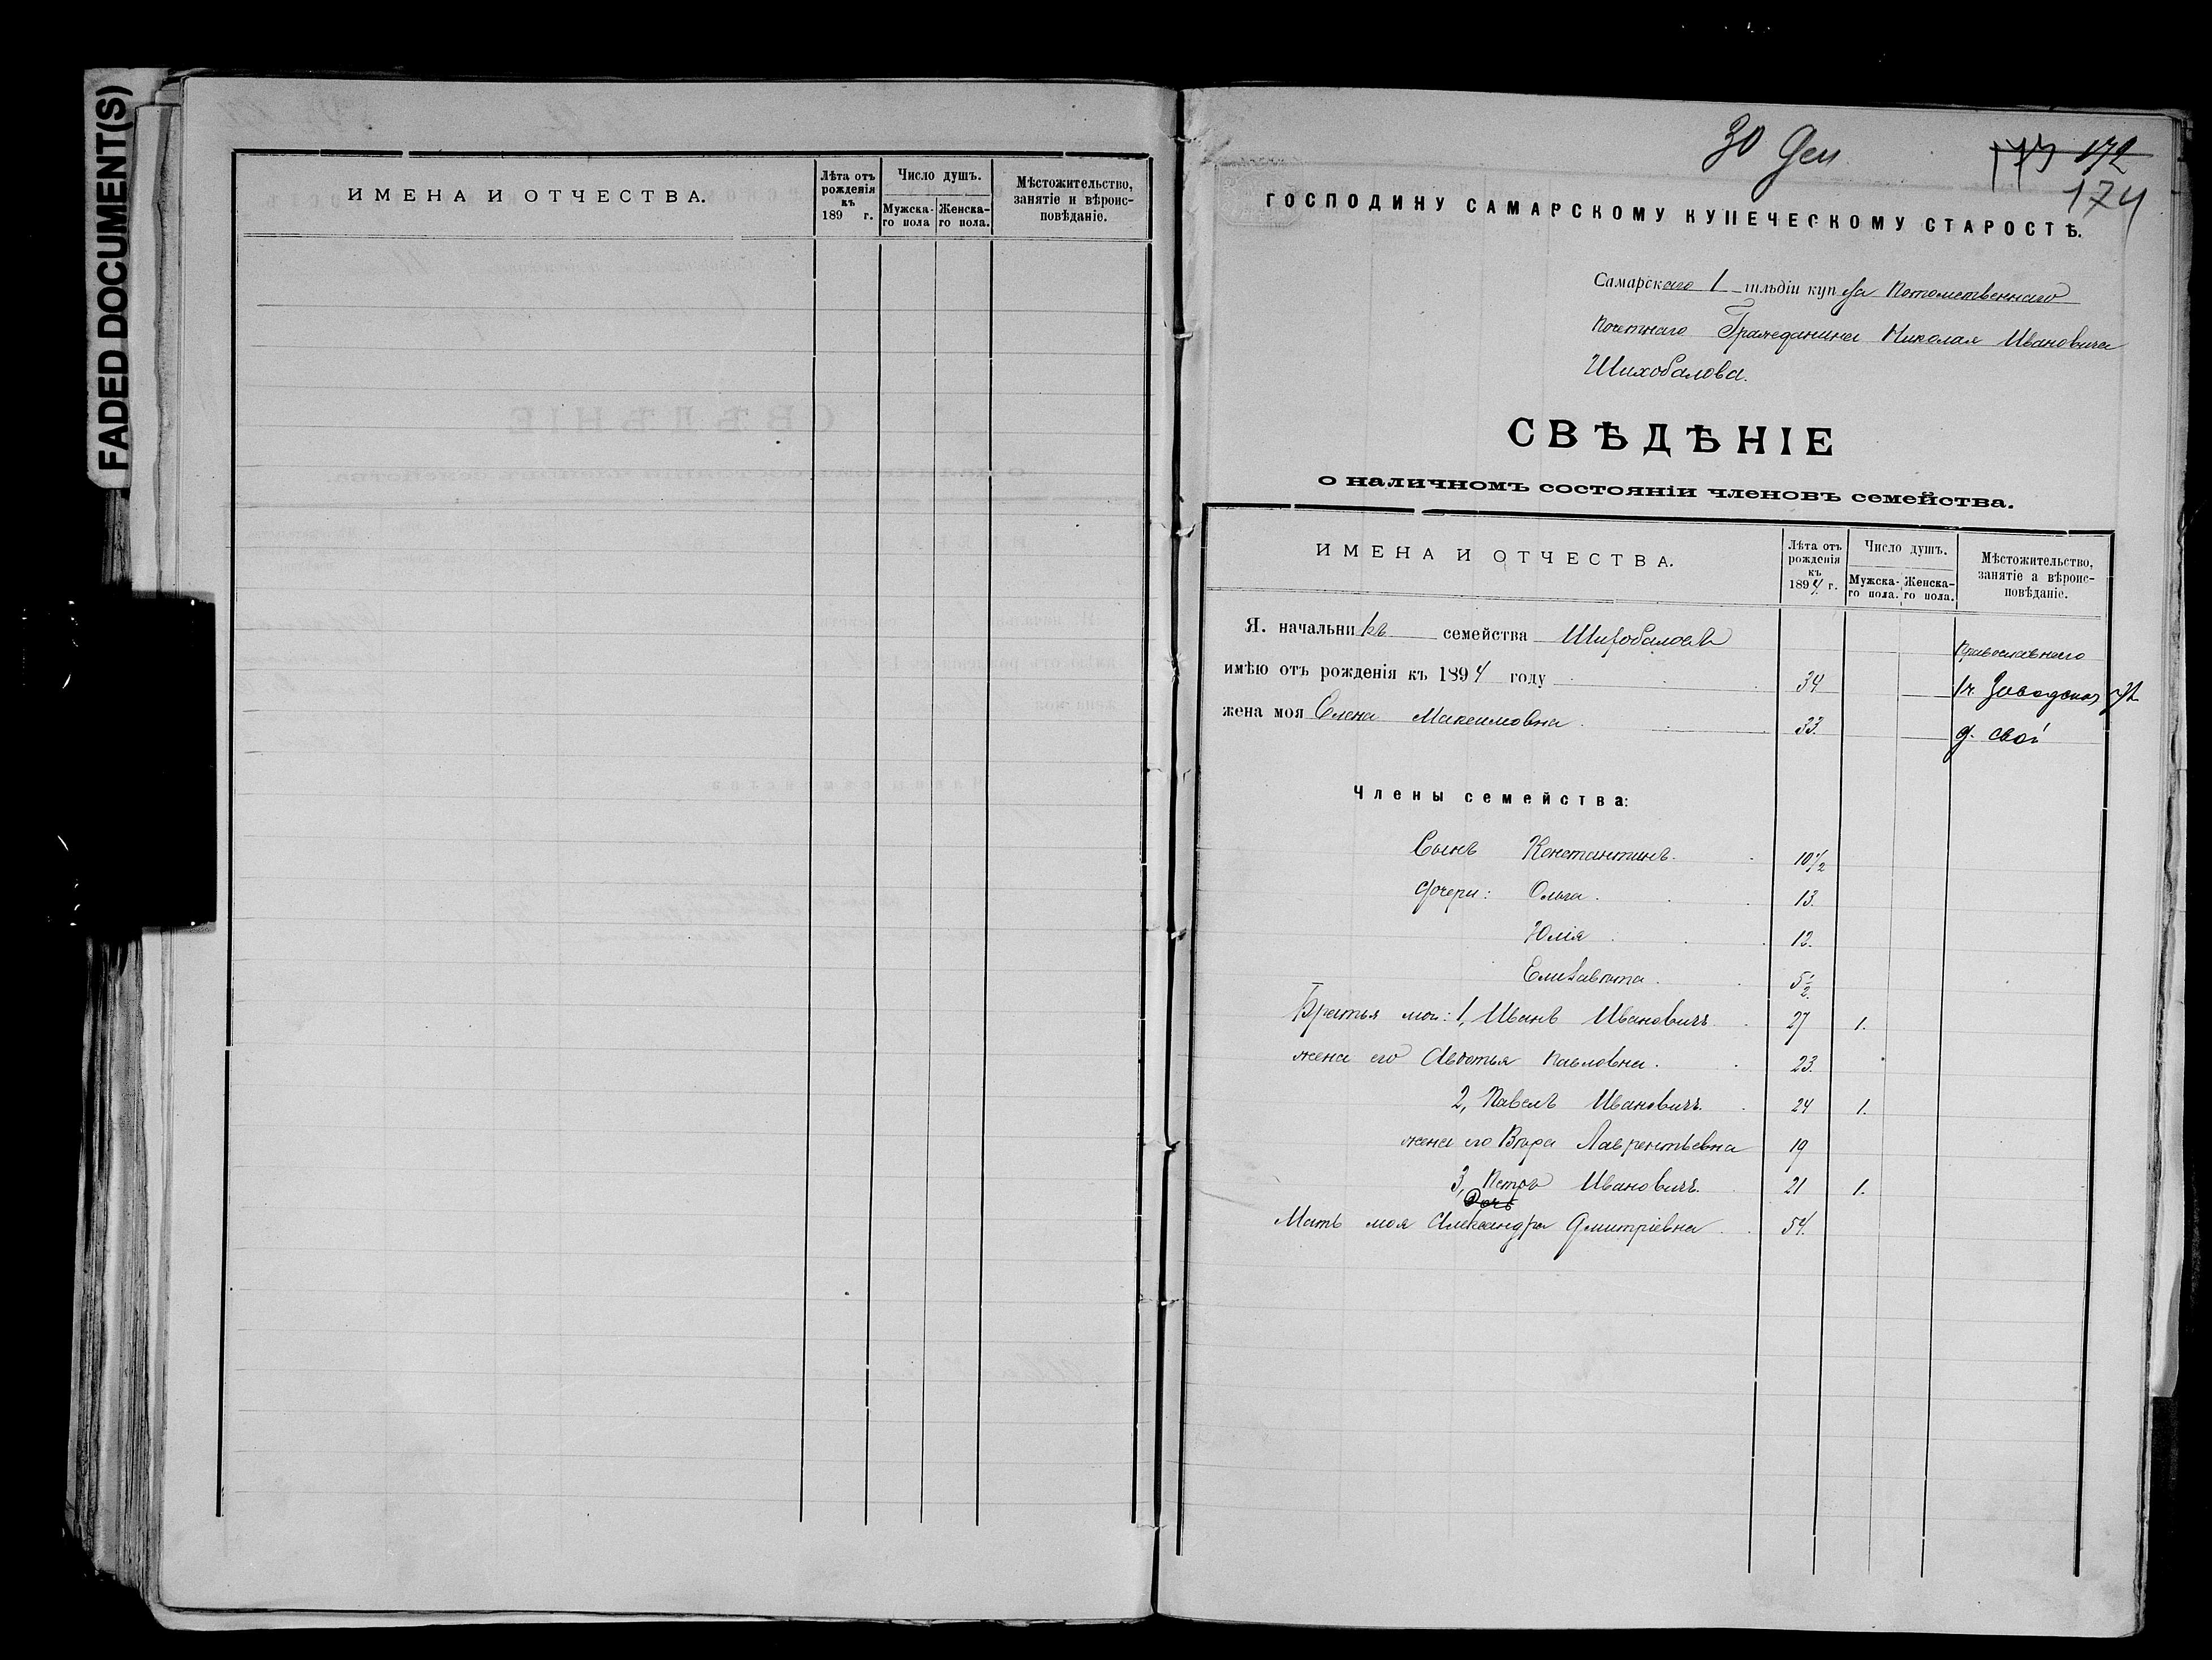 FADED DOCUMENT(S)
ИМЕНА И ОТЧЕСТВА.
Лѣта отъ рожденія къ 189 г.
Число душъ.
Мужска-го пола
Женска-го пола.
Мѣстожительство, занятіе и вѣроис-повѣданіе.
30 Ден
173 172
174
ГОСПОДИНУ САМАРСКОМУ КУПЕЧЕСКОМУ СТАРОСТѢ.
Самарскаго 1 гильдіи купца Потомственнаго
Почетнаго Гражданина Николая Ивановича
Шихобалова.
СВѢДѢНІЕ
о наличномъ состояніи членовъ семейства.
ИМЕНА И ОТЧЕСТВА.
Лѣта отъ рожденія къ 1894 г.
Число душъ.
Мужска-го пола.
Женска-го пола.
Мѣстожительство, занятіе а вѣроис-повѣданіе.
Я. начальникъ семейства Шихобаловъ
Православнаго
имѣю отъ рожденія къ 1894 году 34
1 ч Заводская ул
жена моя Елена Максимовна. 33.
д. свой
Члены семейства:
Сынъ Константинъ. 10 1/2
Дочери: Ольга. 13.
Юлія 12.
Елизавета. 5 1/2.
Братья мои: 1, Иванъ Ивановичъ. 27 1.
жена его Авдотья Павловна. 23.
2, Павелъ Ивановичъ. 24 1.
жена его Вѣра Лаврентьевна 19
3, Петръ Ивановичъ. 21 1.
Дочь
Мать моя Александра Дмитріевна 54.